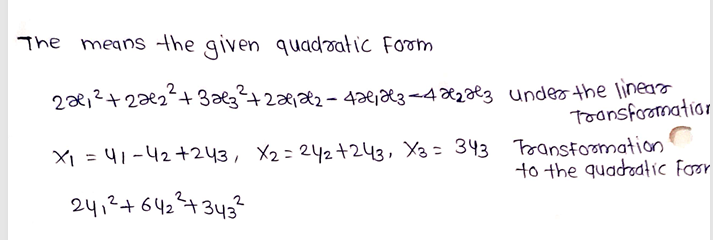 The means the given quadratic Form
2x₁² + 2x₂² + 3x₃² + 2x₁x₂ - 4x₁x₃ - 4x₂x₃ under the linear
Transformation
X₁ = y₁ - y₂ + 2y₃, X₂ = 2y₂ + 2y₃, X₃ = 3y₃ Transformation
to the quadratic Form
2y₁² + 6y₂² + 3y₃²